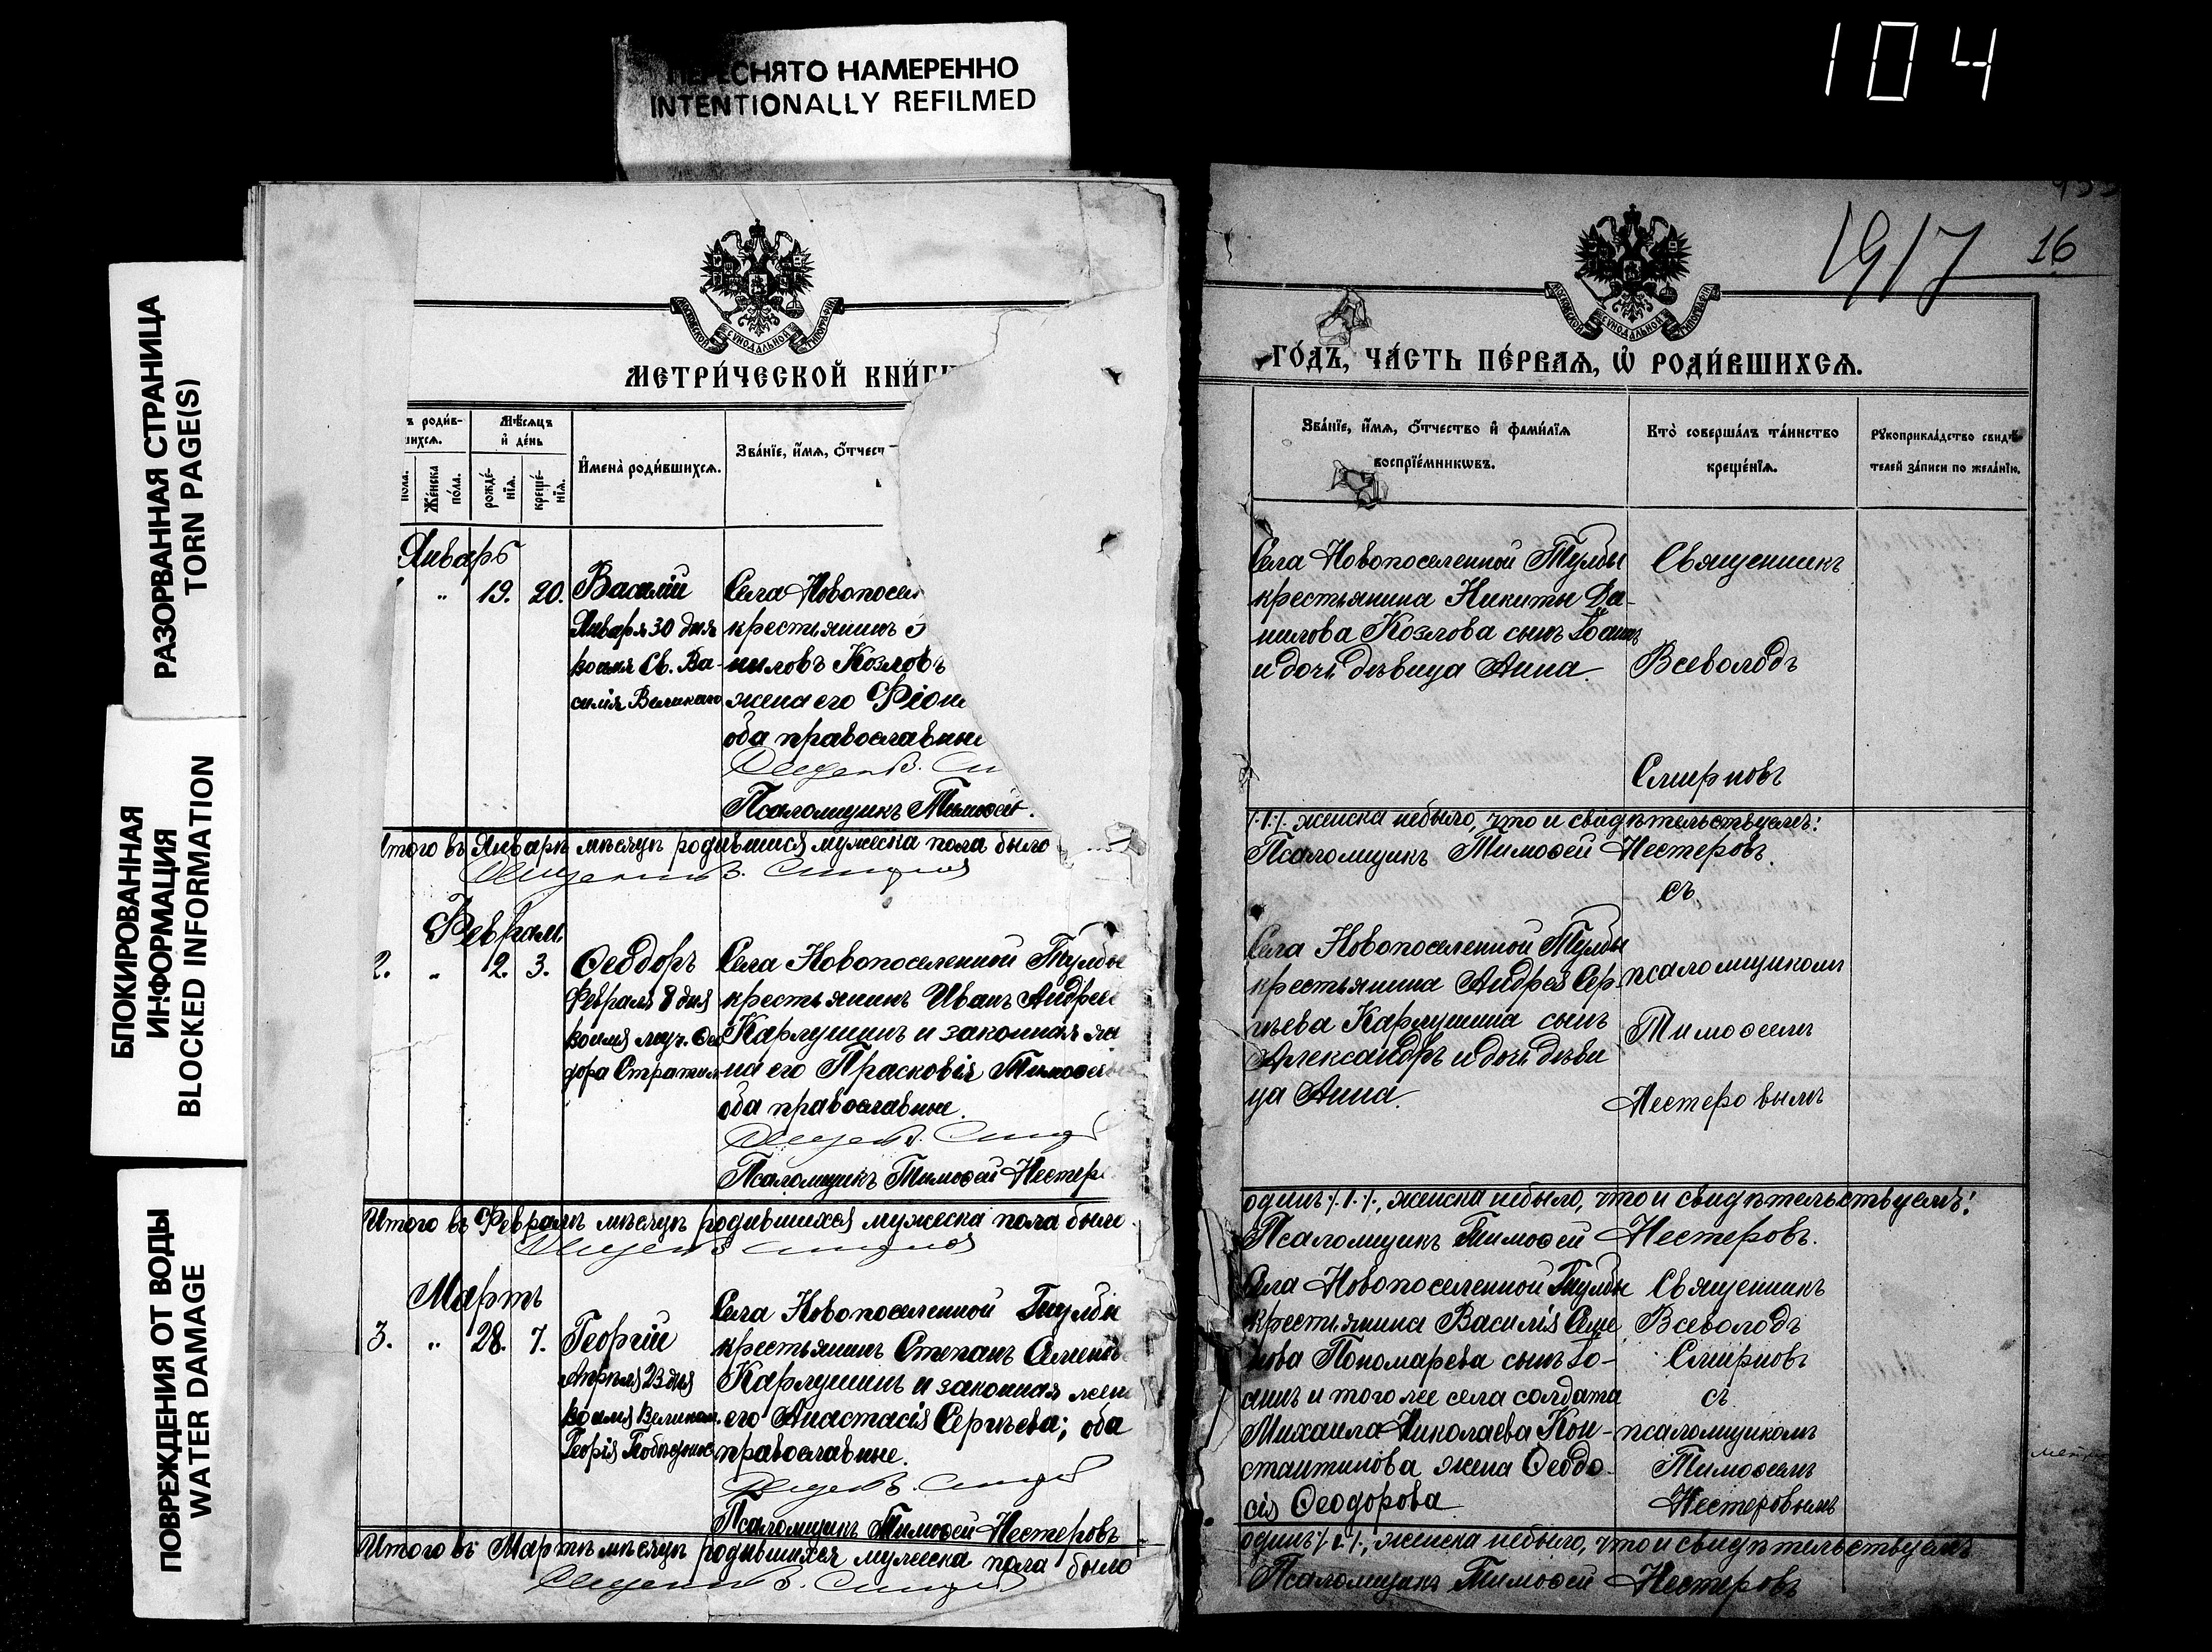 104
ПЕРЕСНЯТО НАМЕРЕННО
INTENTIONALLY REFILMED
РАЗОРВАННАЯ СТРАНИЦА
TORN PAGE(S)
БЛОКИРОВАННАЯ
ИНФОРМАЦИЯ
BLOCKED INFORMATION
ПОВРЕЖДЕНИЯ ОТ ВОДЫ
WATER DAMAGE
МОСКОВСКОЙ СѴНОДАЛЬНОЙ ТИПОГРАФІИ
МЕТРИ́ЧЕСКОЙ КНИ́ГИ
ъ роди́в-
шихся.
Мѣ́сяцъ
и҆ де́нь
пола.
Же́нска
по́ла.
рожде́-
нїя.
креще́-
нїя.
И҆мена̀ роди́вшихся.
Зва́нїе, и҆́мя, ѻ҆́тчест
Январь
" 19. 20. Василій
Января 30 дня
во имя Св. Ва-
силія Великаго
Села Новопосел
крестьянинъ
ниловъ Козловъ
жена его Фіон
оба православные
Псаломщикъ Тимоѳей
Итого въ Январѣ мѣсяцѣ родившихся мужеска пола было
Февраль
2. " 2. 3. Ѳеодоръ
Февраля 8 дня
во имя муч. Ѳео
дора Стратил
Села Новопоселенной Тулбы
крестьянинъ Иванъ Андрее
Карпушинъ и законная же
на его Прасковія Тимоѳе
оба православные.
Псаломщикъ Тимоѳей Нестер
Итого въ Февралѣ мѣсяцѣ родившихся мужеска пола было
Мартъ
3. " 28. 7. Георгій
Апрѣля 23 дня
во имя Великом.
Георгія Побѣдонос
Села Новопоселенной Тулбы
крестьянинъ Степанъ
Карпушинъ и законная жена
его Анастасія Сергѣева; оба
православные.
Псаломщикъ Тимоѳей Нестеровъ
Итого въ Мартѣ мѣсяцѣ родившихся мужеска пола было
1917
16
МОСКОВСКОЙ СѴНОДАЛЬНОЙ ТИПОГРАФІИ
ГО́ДЪ, ЧА́СТЬ ПЕ́РВАЯ, Ѽ РОДИ́ВШИХСЯ.
Зва́нїе, и҆́мя, ѻ҆́тчество и҆ фами́лїя
воспрїе́мникѡвъ.
Кто̀ соверша́лъ та́инство
креще́нїя.
Рꙋкоприкла́дство свидѣ́-
телей за́писи по жела́нїю.
Села Новопоселенной Тулбы
крестьянина Никиты Да-
нилова Козлова сынъ Іоаннъ
и дочь дѣвица Анна.
Священникъ
Всеволодъ
Смирновъ
/.1./. женска небыло, что и свидѣтельствуемъ:
Псаломщикъ Тимоѳей Нестеровъ.
съ
Села Новопоселенной Тулбы
крестьянина Андрея Сер-
гѣева Карпушина сынъ
Александръ и дочь дѣви
ца Анна.
псаломщикомъ
Тимоѳеемъ
Нестеровымъ
одинъ /.1./., женска небыло, что и свидѣтельствуемъ:
Псаломщикъ Тимоѳей Нестеровъ.
Села Новопоселенной Тулбы
крестьянина Василія Семе
нова Пономарева сынъ Іо-
аннъ и того же села солдата
Михаила Николаева Кон-
стантинова жена Ѳеодо-
сія Ѳеодорова
Священникъ
Всеволодъ
Смирновъ
съ
псаломщикомъ
Тимоѳеемъ
Нестеровымъ
одинъ /.1./., женска небыло, что и свидѣтельствуемъ
Псаломщикъ Тимоѳей Нестеровъ